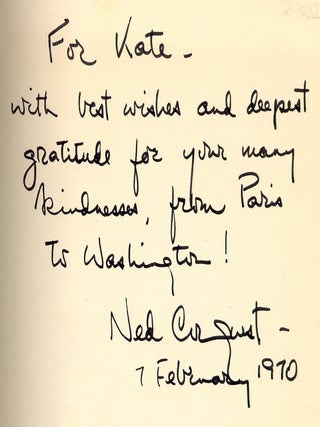 For Kate -
with best wishes and deepest
gratitude for your many
kindnesses, from Paris
to Washington!
Ned
7 February 1970